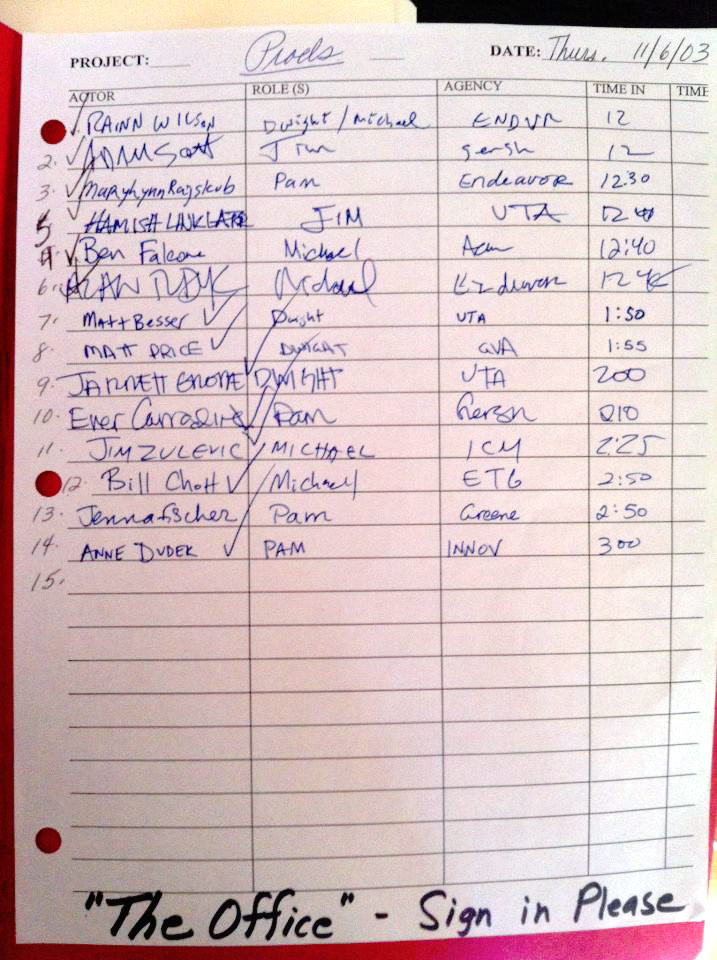 PROJECT: Prods DATE: Thurs. 11/6/03
ACTOR ROLE (S) AGENCY TIME IN TIME
1. RAINN WILSON Dwight / Michael ENDVR 12
2. ADAM Scott Jim gersh 12
3. MaryLynn Rajskub Pam Endeavor 12:30
5 HAMISH LINKLATER JIM UTA
4. Ben Falcone Michael 12:40
6. ALAN TUDYK Michael Endeavor 1245
7. Matt Besser Dwight UTA 1:50
8. MATT PRICE DWIGHT GVA 1:55
9. JARRETT GRODE DWIGHT UTA 200
10. Ever Carradine Pam Gersh 210
11. JIM ZULEVIC MICHAEL ICM 2:25
12. Bill Chott Michael ETG 2:50
13. Jenna fischer Pam Greene 2:50
14. ANNE DUDEK PAM INNOV 300
15.
"The Office" - Sign in Please